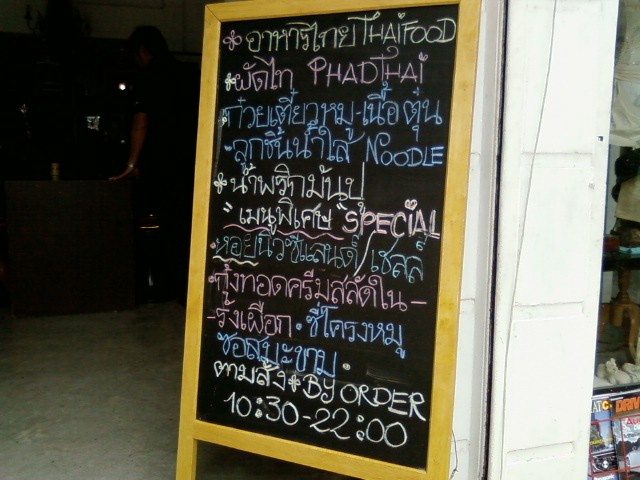 * อาหารไทย THAIFOOD
* ผัดไท PHADTHAI
ก๋วยเตี๋ยวหมู-เนื้อตุ๋น
- ลูกชิ้นน้ำใส NOODLE
* น้ำพริกมันปู
"เมนูพิเศษ" SPECIAL
หอยนิวซีแลนด์/เชลล์
กุ้งทอดครีมสลัดใน -
- รังเผือก · ซี่โครงหมู
ซอสมะขาม ·
ตามสั่ง * BY ORDER
10:30-22:00
DRIV